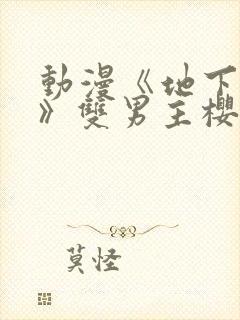 動漫《地下
》雙男主櫻
莫怪